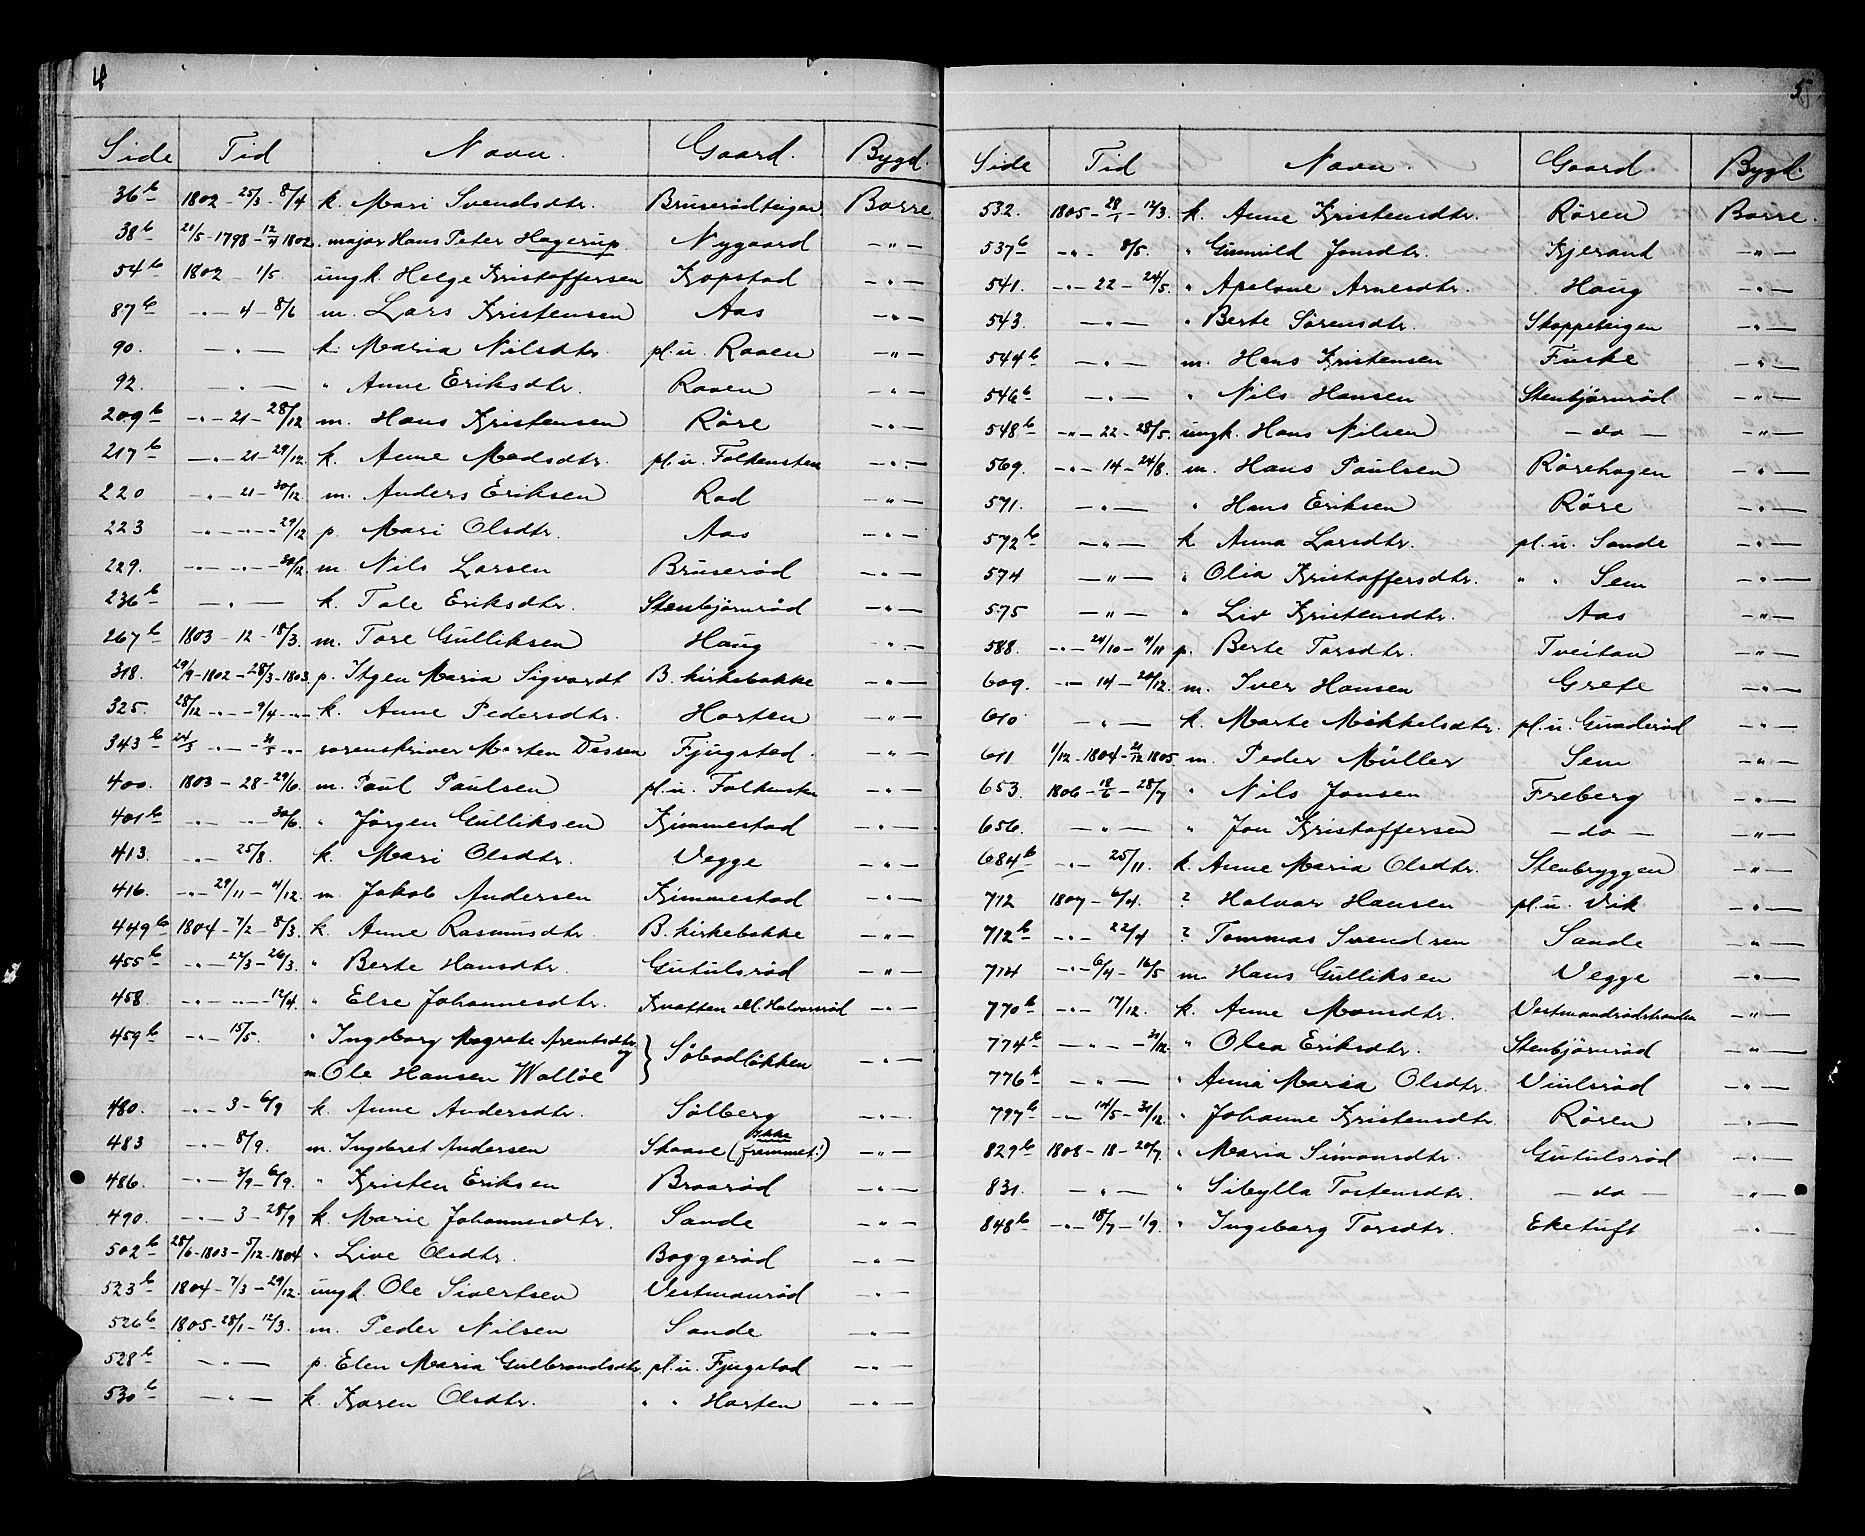 4
Side Tid Navn. Gaard. Bygd.
36b 1802 - 25/3 - 8/4 k. Mari Svendsdtr. Bruserødteigen Borre
38b 21/5 - 1798 - 12/4 1802. major Hans Peter Hagerup Nygaard -"-
54b 1802 - 1/5. ungk. Helge Kristoffersen Kopstad -"-
87b -"- 4 - 8/6 m. Lars Kristensen Aas -"-
90. -"- k. Maria Nilsdtr. pl. u. Raaen -"-
92. -"- " Anne Eriksdtr. Raaen -"-
209b -"- 21 - 28/12 m. Hans Kristensen Røre -"-
217b -"- 21 - 29/12 k. Anne Madsdtr. pl. u. Falkensten -"-
220 -"- 21 - 30/12 m. Anders Eriksen Rad -"-
223 -"- -"- 29/12 p. Mari Olsdtr. Aas -"-
229. -"- -"- 30/12 m. Nils Larsen Bruserød -"-
236b -"- k. Tale Eriksdtr. Stenbjørnrød -"-
267b 1803 - 12 - 18/3. m. Tore Gulliksen Haug -"-
318. 29/9 - 1802 - 28/3 - 1803. p. Itgen Maria Sigvardt B. kirkebakke -"-
325. 28/12 -"- 9/4 -"- k. Anne Pedersdtr. Horten -"-
343b 24/3 -"- 21/5 -"- sorenskriver Morten Dessen Fjugstad. -"-
400. 1803 - 28 - 29/6. m. Paul Paulsen pl. u. Falkensten -"-
401b -"- -"- 30/6. " Jørgen Gulliksen Kimmestad -"-
413. -"- 25/8. k. Mari Olsdtr. Vegge -"-
416. -"- 29/11 - 4/12. m. Jakob Andersen Kimmestad -"-
449b 1804 - 7/2 - 8/3. k. Anne Rasmusdtr. B. kirkebakke -"-
455b -"- 22/3 - 26/3. " Berte Hansdtr. Gutulsrød -"-
458. -"- -"- 12/4. " Else Johannesdtr. Knatten ell. Halvorsrød -"-
459b -"- 15/5. " Ingeborg Magrete Arentsdtr. og } Søbadløkken -"-
m. Ole Hansen Walløe
480. -"- 3 - 6/9 k. Anne Andersdtr. Sølberg -"-
483 -"- 8/9. m. Ingebret Andersen Skaane (fremmet!) -"-
486. -"- 3/9 - 6/9. " Kristen Eriksen Braarød -"-
490. -"- 3 - 28/9 k. Marie Johannesdtr. Sande -"-
502b 28/6 - 1803 - 5/12 - 1804 " Live Olsdtr. Boggerød -"-
523b 1804 - 7/3 - 29/12. ungk. Ole Sivertsen Vestmanrød -"-
526b 1805 - 28/1 - 12/3. m. Peder Nilsen Sande -"-
528b -"- p. Elen Maria Gulbrandsdtr. pl. u. Fjugstad -"-
530b -"- k. Karen Olsdtr. " " Horten -"-
5
Side Tid Navn. Gaard. Bygd.
532. 1805 - 28/1 - 12/3. k. Anne Kristensdtr. Røren Borre.
537b -"- 8/5. " Gunnild Jonsdtr. Kjerand -"-
541. -"- 22 - 24/5. " Apelone Arnesdtr. Haug -"-
543. -"- " Berte Sørensdtr. Skoppeteigen -"-
544b -"- m. Hans Kristensen Fuske -"-
546b -"- " Nils Hansen Stenbjørnrød -"-
548b -"- 22 - 28/5. ungk. Hans Nilsen - do - -"-
569. -"- 14 - 24/8. m. Hans Paulsen Rørehagen -"-
571. -"- " Hans Eriksen Røre -"-
572b -"- k. Anna Larsdtr. pl. u. Sande -"-
574 -"- " Olia Kristoffersdtr. " " Sem -"-
575 -"- " Liv Kristensdtr. Aas -"-
588. -"- 24/10 - 4/11 p. Berte Torsdtr. Tveitan -"-
609. -"- 14 - 20/12. m. Iver Hansen Grefe -"-
610 -"- k. Marte Mikkelsdtr. pl. u. Gunderød -"-
611 1/12 - 1804 - 21/12 1805. m. Peder Müller Sem -"-
653. 1806 - 18/6 - 28/7 " Nils Jonsen Freberg -"-
656. -"- " Jon Kristoffersen - do - -"-
684b -"- 25/11. k. Anne Maria Olsdtr. Stenbryggen -"-
712 1807 - 6/4. ? Halvor Hansen pl. u. Vik -"-
712b -"- 22/4 ? Tommas Svendsen Sande -"-
714 -"- 6/4 - 16/5 m. Hans Gulliksen Vegge -"-
770b -"- 17/12. k. Anne Monsdtr. Vestmandrødstranden -"-
774b -"- -"- 31/12. " Olea Eriksdtr. Stenbjørnrød -"-
776b -"- " Anna Maria Olsdtr. Viulsrød -"-
797b -"- 14/5 - 31/12. " Johanne Kristensdtr. Røren -"-
829b 1808 - 18 - 20/7. " Maria Simonsdtr. Gutulsrød -"-
831. -"- " Sibylla Tostensdtr. - do - -"-
848b -"- 18/7 - 1/9. " Ingeborg Torsdtr. Eketuft -"-